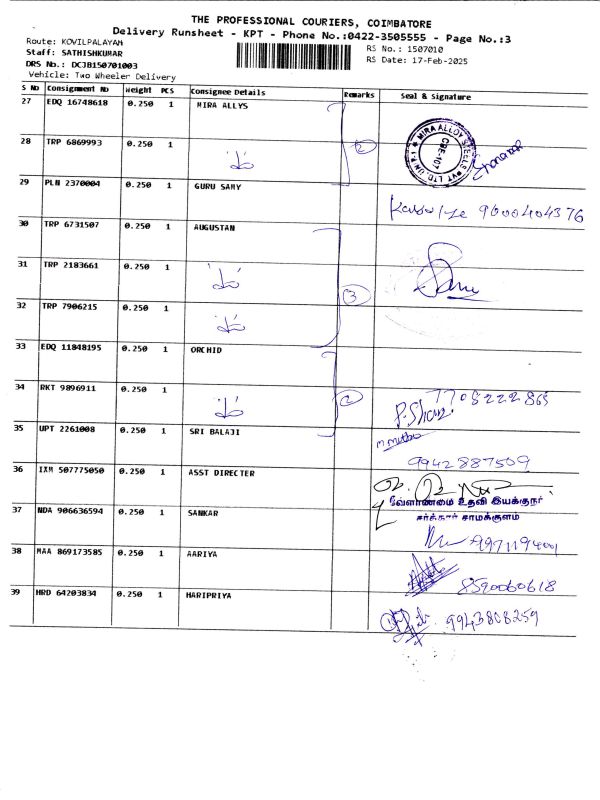 THE PROFESSIONAL COURIERS, COIMBATORE
Delivery Runsheet - KPT - Phone No.:0422-3505555 - Page No.:3
Route: KOVILPALAYAM
RS No.: 1507010
Staff: SATHISHKUMAR
RS Date: 17-Feb-2025
DRS No.: DCJB150701003
Vehicle: Two Wheeler Delivery
S No Consignment No Weight PCS Consignee Details Remarks Seal & Signature
27 EDQ 16748618 0.250 1 MIRA ALLYS
MIRA ALLOY STEELS PVT LTD. UNIT-I
CBE-107
28 TRP 6869993 0.250 1 2
29 PLN 2370004 0.250 1 GURU SAMY
9600404376
30 TRP 6731507 0.250 1 AUGUSTAN
31 TRP 2183661 0.250 1
3
32 TRP 7906215 0.250 1
33 EDQ 11848195 0.250 1 ORCHID
34 RKT 9896911 0.250 1 2 7705222865
35 UPT 2261008 0.250 1 SRI BALAJI
9942887509
36 IXM 507775050 0.250 1 ASST DIRECTER
வேளாண்மை உதவி இயக்குநர்
சர்க்கார் சாமக்குளம்
37 NDA 906636594 0.250 1 SANKAR
9971194001
38 MAA 869173585 0.250 1 AARIYA
8590060618
39 HRD 64203834 0.250 1 HARIPRIYA
9943808259